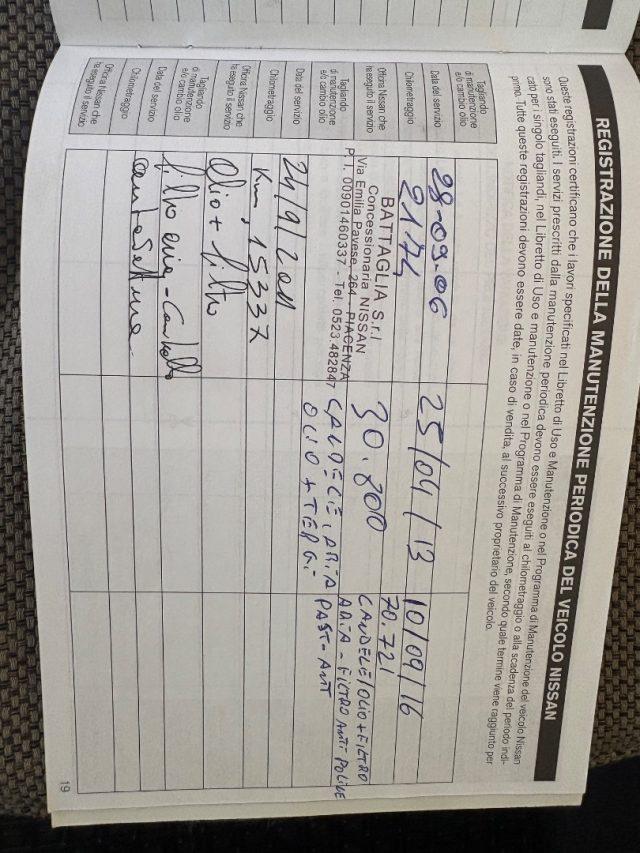 REGISTRAZIONE DELLA MANUTENZIONE PERIODICA DEL VEICOLO NISSAN
Queste registrazioni certificano che i lavori specificati nel Libretto di Uso e Manutenzione o nel Programma di Manutenzione del veicolo Nissan
sono stati eseguiti. I servizi prescritti dalla manutenzione periodica devono essere eseguiti al chilometraggio o alla scadenza del periodo indi-
cato per i singolo tagliandi, nel Libretto di Uso e manutenzione o nel Programma di Manutenzione, secondo quale termine viene raggiunto per
primo. Tutte queste registrazioni devono essere date, in caso di vendita, al successivo proprietario del veicolo.
Tagliando
di manutenzione
e/o cambio olio
Data del servizio
28-09-06
25/04/13
10/09/16
Chilometraggio
2174
30.800
70.721
Officina Nissan che
ha eseguito il servizio
BATTAGLIA S.r.l
Concessionaria NISSAN
Via Emilia Pavese, 264 - PIACENZA
P. I. 00901460337 - Tel. 0523 482847
CANDELE/OLIO+FILTRO
ARIA - FILTRO ANTI POLINE
PAST-ANT
Tagliando
di manutenzione
e/o cambio olio
CANDELE, ARIA
OLIO + TERG.
Data del servizio
24/9/2011
Chilometraggio
Km, 15337
Officina Nissan che
ha eseguito il servizio
Olio + filtro
Tagliando
di manutenzione
e/o cambio olio
Data del servizio
filtro aria -
Chilometraggio
Officina Nissan che
ha eseguito il servizio
19